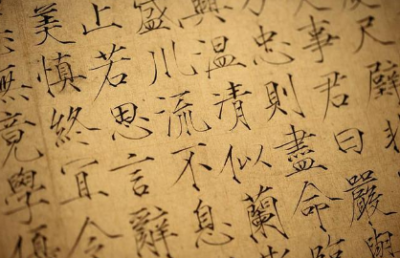 尺璧非
事君曰嚴與
忠則盡命臨
興溫清似蘭斯
盛川流不息
止若思言辭
美慎終宜令
無竟學優